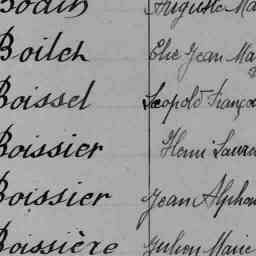 Bodin Auguste Ma
Boilch Elie Jean Ma
Boissel Léopold Franço
Boissier Henri Laure
Boissier Jean Alphon
Boissière Julien Marie